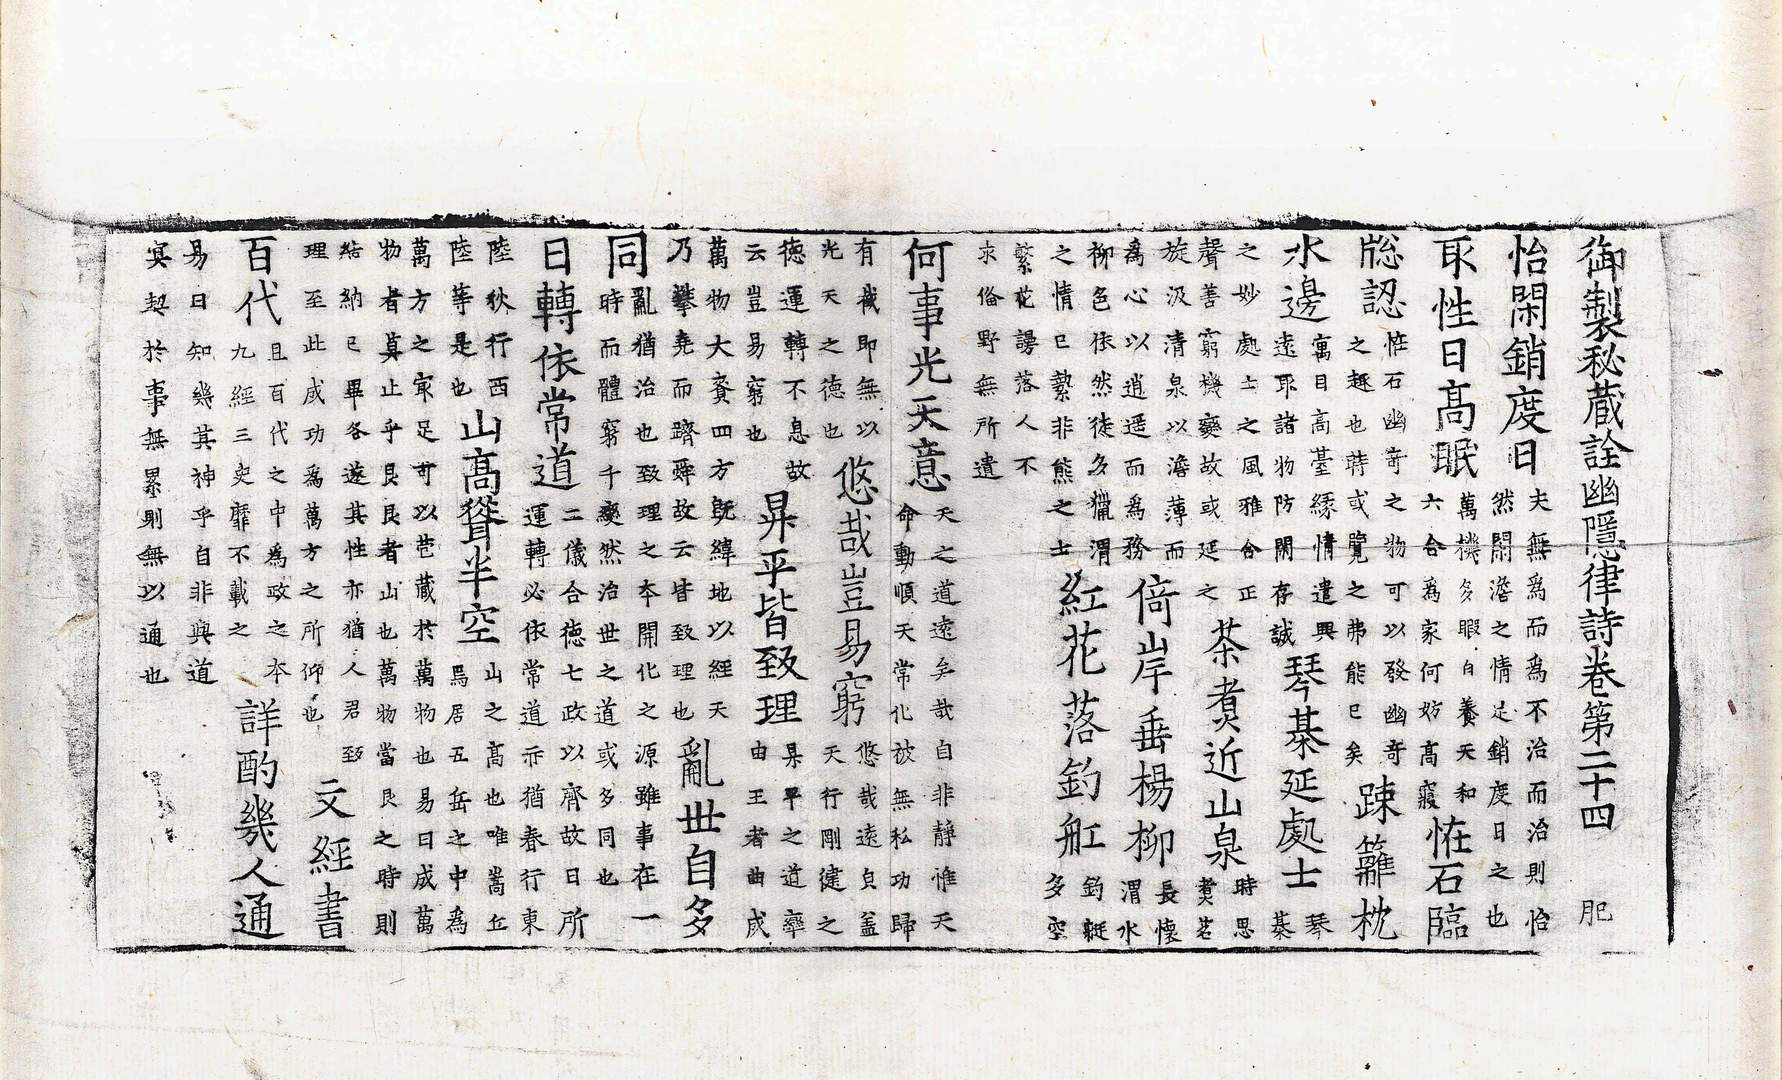 御製秘蔵詮幽隱律詩卷第二十四 肥
怡閑銷度日
夫無爲而爲不治而治則怡
然閑澹之情足銷度日之也
取性日高眠
萬機多暇日養天和
六合爲家何妨高寢
恠石臨
牕認
恠石幽竒之物可以發幽竒
之趣也蒔或覽之弗能已矣
踈籬枕
水邊
寓目高䑓緣情遣興
遠取諸物防閑存誠
琴棊延處士
琴
棊
之妙處士之風雅合正
聲善窮機變故或延之
茶煑近山泉
時思
煑茗
旋汲清泉以澹薄而
爲心以逍遥而爲務
倚岸垂楊柳
長懷
渭水
柳色依然徒多獵渭
之情已蓺非熊之士
紅花落釣舡
釣艇
多空
繁花謾落人不
求俻野無所遺
何事光天意
天之道遠矣哉自非靜惟天
命動順天常化被無私功歸
有截即無以
光天之德也
悠哉豈易窮
悠哉遠貞盖
天行剛健之
德運轉不息故
云豈易窮也
昇平皆致理
昇平之道率
由王者曲成
萬物大賚四方旣緯地以經天
乃擧堯而躋舜故云皆致理也
亂世自多
同
亂猶治也致理之本開化之源雖事在一
時而體窮千變然治世之道或多同也
日轉依常道
二儀合德七政以齊故曰所
運轉必依常道亦猶春行東
陸秋行西
陸等是也
山高聳半空
山之高也唯嵩丘
焉居五岳之中爲
萬方之㝡足可以苞藏於萬物也易曰成萬
物者莫止乎艮艮者山也萬物當艮之時則
結納已畢各遂其性亦猶人君致
理至此成功爲萬方之所仰也
文經書
百代
且百代之中爲政之本
九經三史靡不載之
詳酌幾人通
易曰知幾其神乎自非與道
冥契於事無累則無以通也